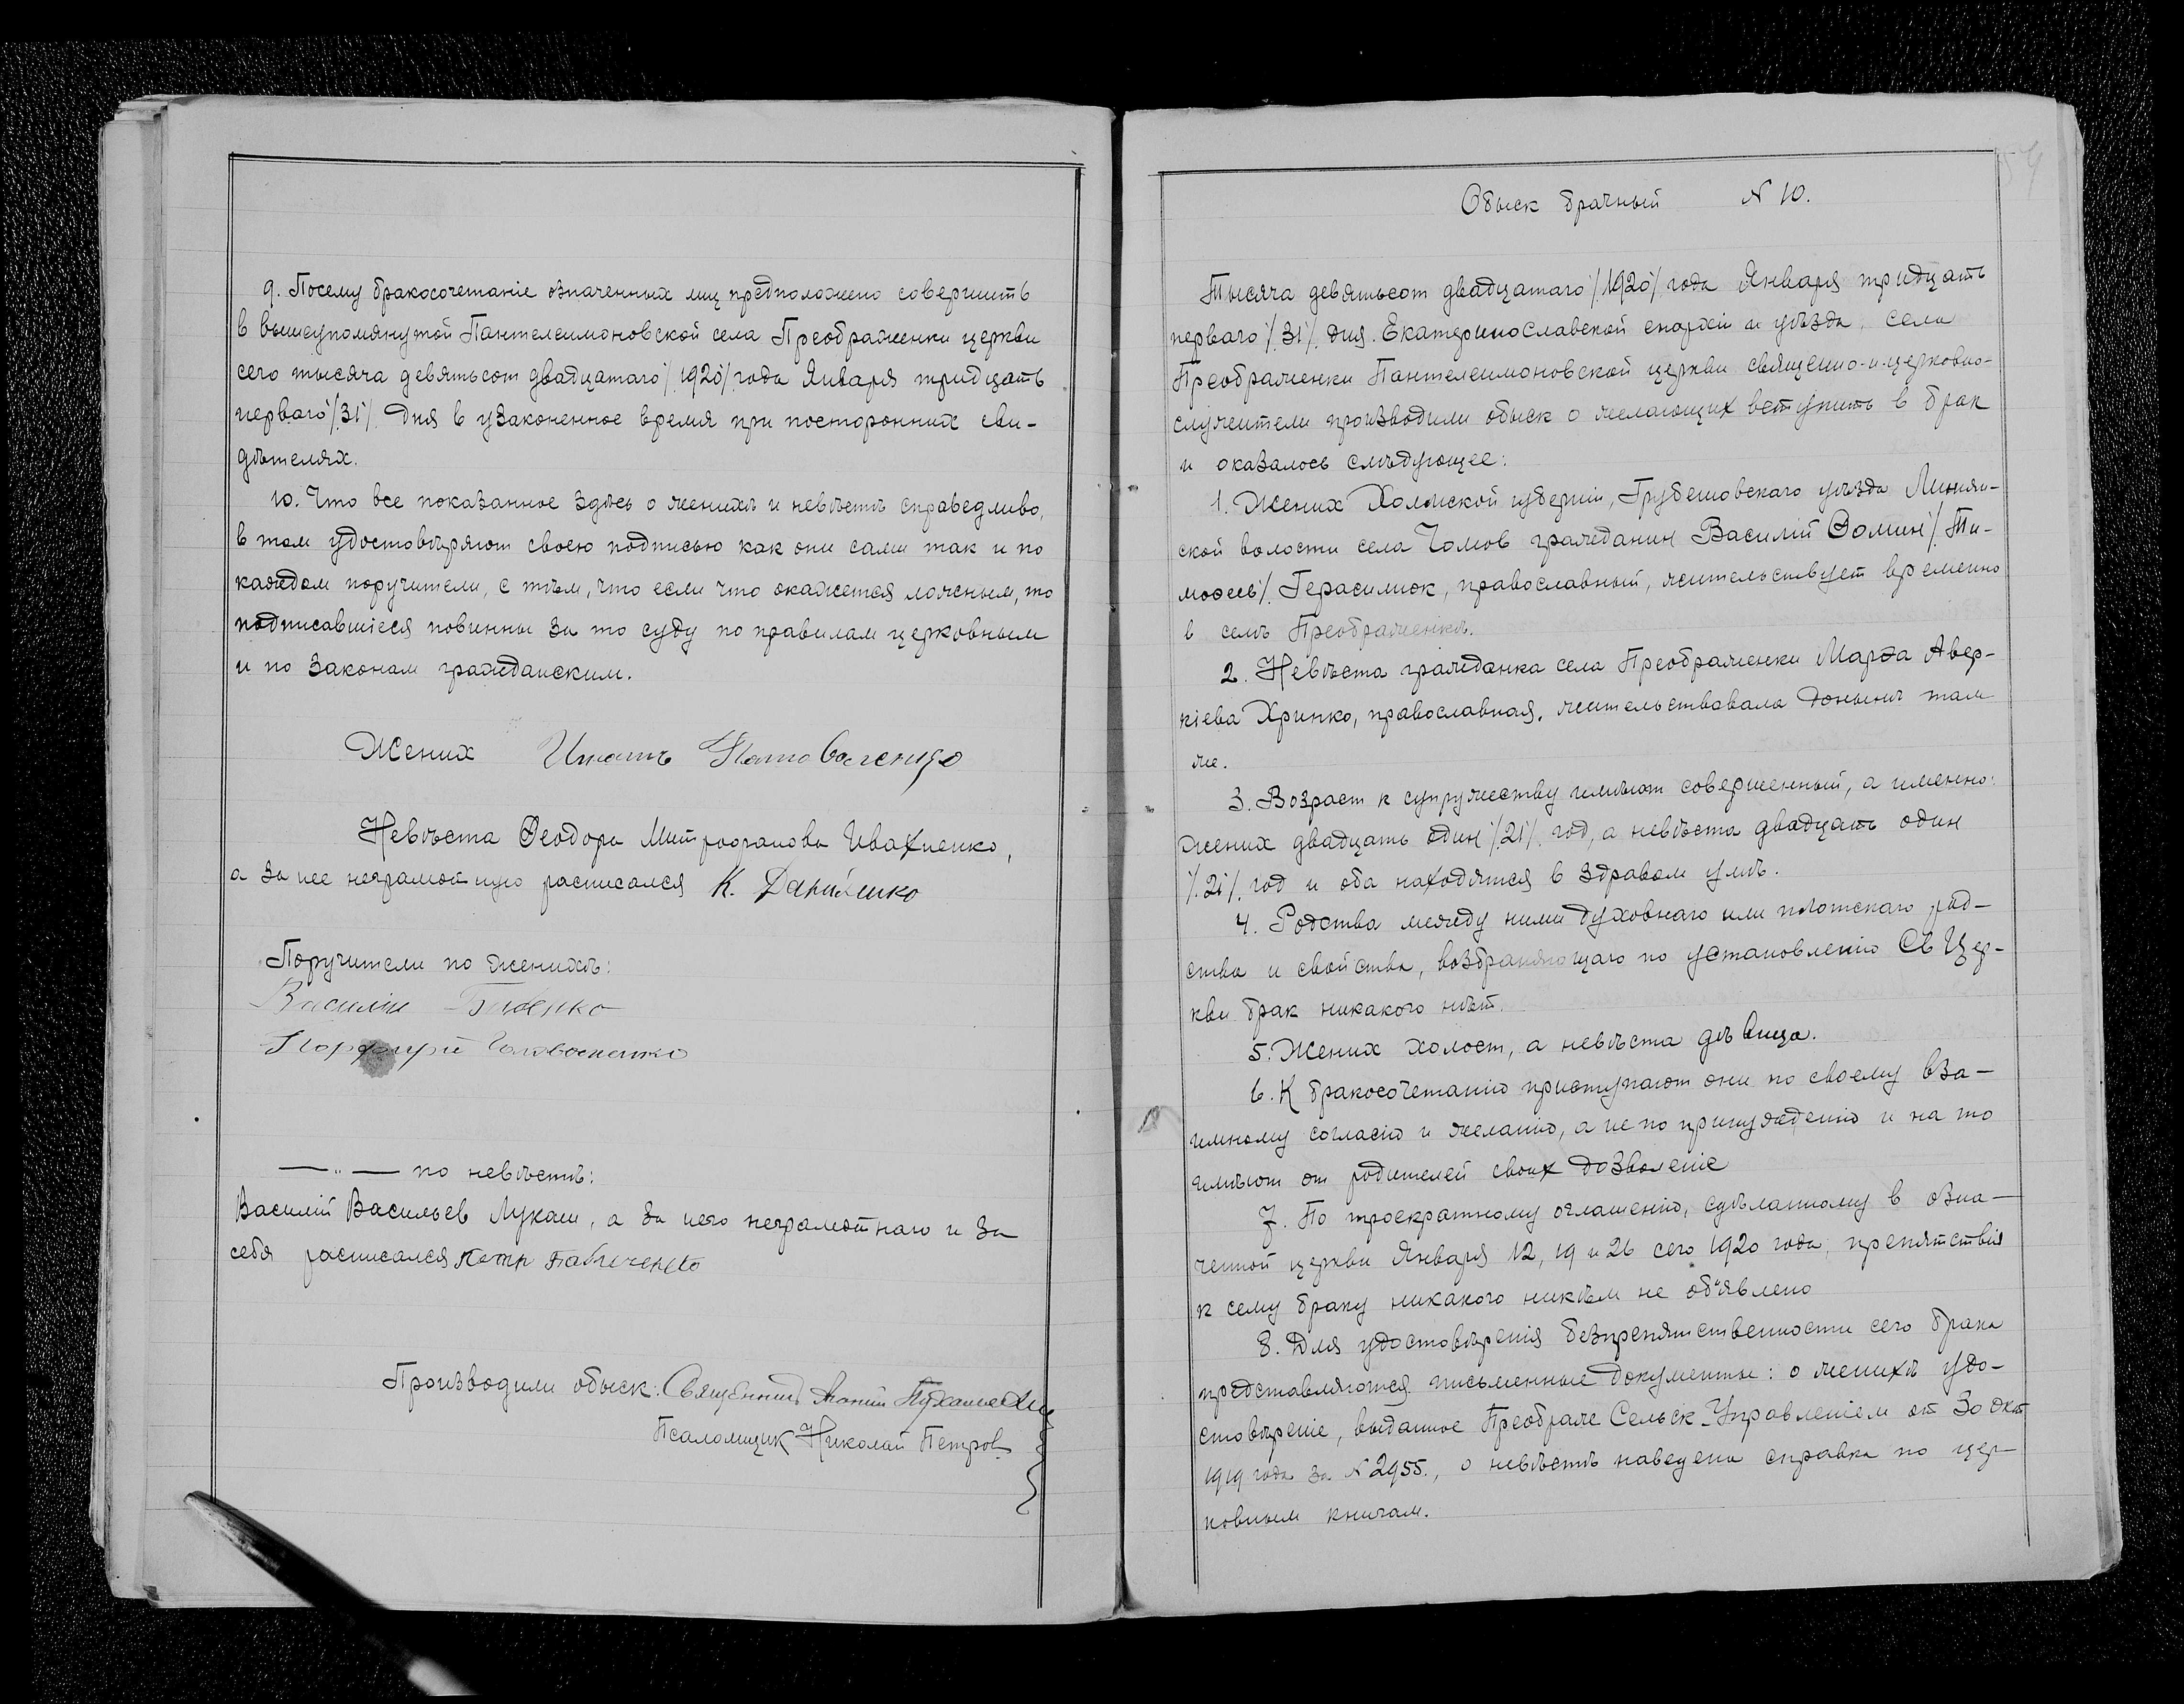 9. Посему бракосочетаніе означенных лиц предположено совершить
в вышеупомянутой Пантелеимоновской села Преображенки церкви
сего тысяча девятьсот двадцатаго /1920/ года Января тридцать
перваго /31/ дня в узаконенное время при посторонних сви-
дѣтелях.
10. Что все показанное здѣсь о женихѣ и невѣстѣ справедливо,
в том удостовѣряют своею подписью как они сами так и по
каждом поручители, с тѣм, что если что окажется ложным, то
подписавшіеся повинны за то суду по правилам церковным
и по законам гражданским.
Жених
Невѣста Ѳеодора Митрофанова Ивахненко,
а за нее неграмотную расписался К. Даниленко
Поручители по женихѣ:
Василій
Порфирій
—"— по невѣстѣ:
Василій Васильев Лукаш, а за него неграмотнаго и за
себя расписался Петр
Производили обыск: Священник
Псаломщик Николай Петров
54
Обыск брачный N 10.
Тысяча девятьсот двадцатаго /1920/ года Января тридцать
перваго /31/ дня. Екатеринославской епархіи и уѣзда, села
Преображенки Пантелеимоновской церкви священно-и-церковно-
служители производили обыск о желающих вступить в брак
и оказалось слѣдующее:
1. Жених Холмской губерніи, Грубешовскаго уѣзда Минян-
ской волости села Гомов гражданин Василій Ѳомин /Ти-
моѳеев/ Герасимюк, православный, жительствует временно
в селѣ Преображенкѣ.
2. Невѣста гражданка села Преображенки Марѳа Авер-
кіева Хринко, православная, жительствовала донынѣ там
же.
3. Возраст к супружеству имѣют совершенный, а именно:
жених двадцать один /21/ год, а невѣста двадцать один
/21/ год и оба находятся в здравом умѣ.
4. Родства между ними духовнаго или плотскаго род-
ства и свойства, возбраняющаго по установленію Св Цер-
кви брак никакого нѣт.
5. Жених холост, а невѣста дѣвица.
6. К бракосочетанію приступают они по своему вза-
имному согласію и желанію, а не по принужденію и на то
имѣют от родителей своих дозволеніе
7. По троекратному оглашенію, сдѣланному в озна-
ченной церкви Января 12, 19 и 26 сего 1920 года, препятствія
к сему браку никакого никѣм не объявлено
8. Для удостовѣренія безпрепятственности сего брака
представляются письменные документы: о женихѣ удо-
стовѣреніе, выданное Преображ Сельск Управленіем от 30 окт
1919 года за N 2955., о невѣстѣ наведена справка по цер-
ковным книгам.